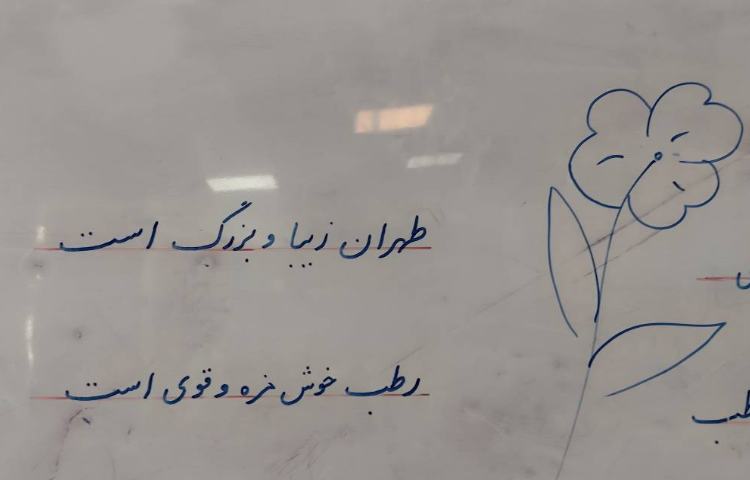 طهران زیبا و بزرگ است
رطب خوش مزه و قوی است